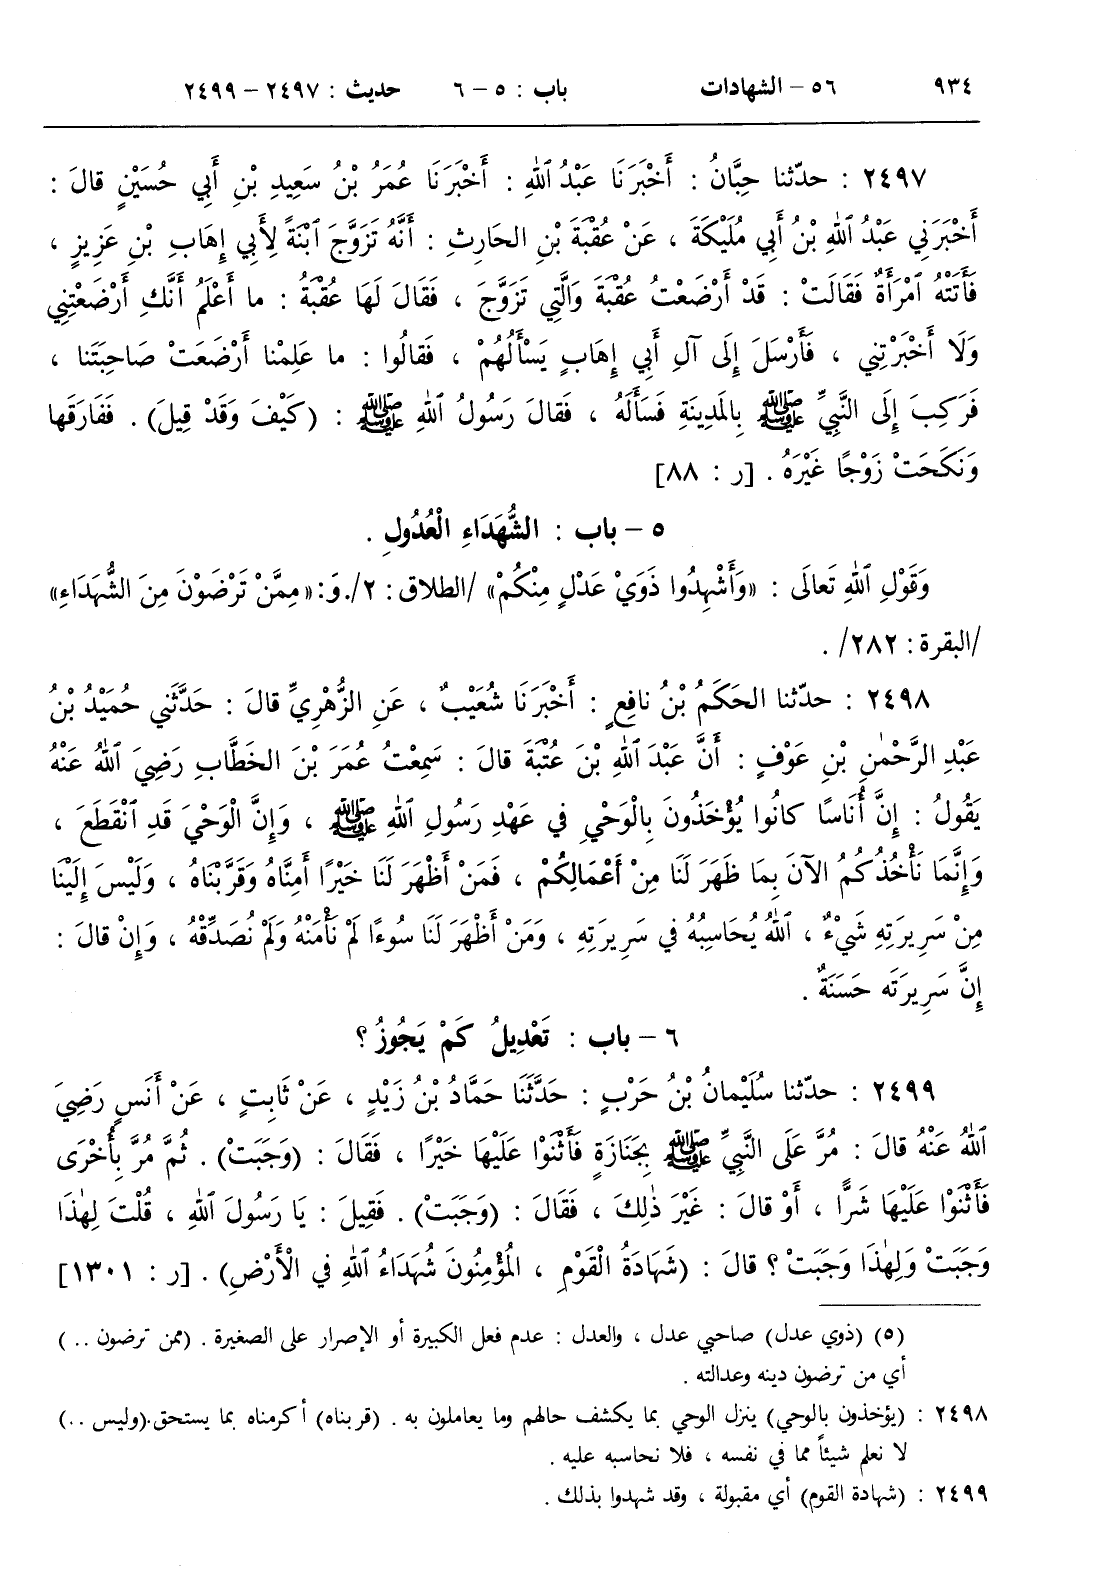 ٩٣٤ ٥٦ – الشهادات باب : ٥ – ٦ حديث : ٢٤٩٧ – ٢٤٩٩
٢٤٩٧ : حدّثنا حِبَّانُ : أَخْبَرَنَا عَبْدُ ٱللهِ : أَخْبَرَنَا عُمَرُ بْنُ سَعِيدِ بْنِ أَبِي حُسَيْنٍ قالَ :
أَخْبَرَنِي عَبْدُ ٱللهِ بْنُ أَبِي مُلَيْكَةَ ، عَنْ عُقْبَةَ بْنِ الحَارِثِ : أَنَّهُ تَزَوَّجَ ٱبْنَةً لِأَبِي إِهَابِ بْنِ عَزِيزٍ ،
فَأَتَتْهُ ٱمْرَأَةٌ فَقَالَتْ : قَدْ أَرْضَعْتُ عُقْبَةَ وَالَّتِي تَزَوَّجَ ، فَقَالَ لَهَا عُقْبَةُ : ما أَعْلَمُ أَنَّكِ أَرْضَعْتِنِي
وَلَا أَخْبَرْتِنِي ، فَأَرْسَلَ إِلَى آلِ أَبِي إِهَابٍ يَسْأَلُهُمْ ، فَقَالُوا : ما عَلِمْنا أَرْضَعَتْ صَاحِبَتَنا ،
فَرَكِبَ إِلَى النَّبِيِّ ﷺ بِالمَدِينَةِ فَسَأَلَهُ ، فَقالَ رَسُولُ ٱللهِ ﷺ : (كَيْفَ وَقَدْ قِيلَ) . فَفَارَقَها
وَنَكَحَتْ زَوْجًا غَيْرَهُ . [ر : ٨٨]
٥ – باب : الشُّهَدَاءِ الْعُدُولِ .
وَقَوْلِ ٱللهِ تَعَالَى : «وَأَشْهِدُوا ذَوَيْ عَدْلٍ مِنْكُمْ» /الطلاق : ٢/. وَ: «مِمَّنْ تَرْضَوْنَ مِنَ الشُّهَدَاءِ»
/البقرة : ٢٨٢/ .
٢٤٩٨ : حدّثنا الحَكَمُ بْنُ نافِعٍ : أَخْبَرَنَا شُعَيْبٌ ، عَنِ الزُّهْرِيِّ قالَ : حَدَّثَنِي حُمَيْدُ بْنُ
عَبْدِ الرَّحْمٰنِ بْنِ عَوْفٍ : أَنَّ عَبْدَ ٱللهِ بْنَ عُتْبَةَ قالَ : سَمِعْتُ عُمَرَ بْنَ الخَطَّابِ رَضِيَ ٱللهُ عَنْهُ
يَقُولُ : إِنَّ أُنَاسًا كانُوا يُؤْخَذُونَ بِالْوَحْيِ في عَهْدِ رَسُولِ ٱللهِ ﷺ ، وَإِنَّ الْوَحْيَ قَدِ ٱنْقَطَعَ ،
وَإِنَّمَا نَأْخُذُكُمُ الآنَ بِمَا ظَهَرَ لَنَا مِنْ أَعْمَالِكُمْ ، فَمَنْ أَظْهَرَ لَنَا خَيْرًا أَمِنَّاهُ وَقَرَّبْنَاهُ ، وَلَيْسَ إِلَيْنَا
مِنْ سَرِيرَتِهِ شَيْءٌ ، ٱللهُ يُحَاسِبُهُ في سَرِيرَتِهِ ، وَمَنْ أَظْهَرَ لَنَا سُوءًا لَمْ نَأْمَنْهُ وَلَمْ نُصَدِّقْهُ ، وَإِنْ قالَ :
إِنَّ سَرِيرَتَه حَسَنَةٌ .
٦ – باب : تَعْدِيلُ كَمْ يَجُوزُ ؟
٢٤٩٩ : حدّثنا سُلَيْمانُ بْنُ حَرْبٍ : حَدَّثَنَا حَمَّادُ بْنُ زَيْدٍ ، عَنْ ثَابِتٍ ، عَنْ أَنَسٍ رَضِيَ
ٱللهُ عَنْهُ قالَ : مُرَّ عَلَى النَّبِيِّ ﷺ بِجَنَازَةٍ فَأَثْنَوْا عَلَيْهَا خَيْرًا ، فَقَالَ : (وَجَبَتْ) . ثُمَّ مُرَّ بِأُخْرَى
فَأَثْنَوْا عَلَيْهَا شَرًّا ، أَوْ قالَ : غَيْرَ ذٰلِكَ ، فَقَالَ : (وَجَبَتْ) . فَقِيلَ : يَا رَسُولَ ٱللهِ ، قُلْتَ لِهٰذَا
وَجَبَتْ وَلِهٰذَا وَجَبَتْ ؟ قالَ : (شَهَادَةُ الْقَوْمِ ، المُؤْمِنُونَ شُهَدَاءُ ٱللهِ في الْأَرْضِ) . [ر : ١٣٠١]
(٥) (ذوي عدل) صاحبي عدل ، والعدل : عدم فعل الكبيرة أو الإصرار على الصغيرة . (ممن ترضون .. )
أي من ترضون دينه وعدالته .
٢٤٩٨ : (يؤخذون بالوحي) ينزل الوحي بما يكشف حالهم وما يعاملون به . (قربناه) أكرمناه بما يستحق .(وليس ..)
لا نعلم شيئاً مما في نفسه ، فلا نحاسبه عليه .
٢٤٩٩ : (شهادة القوم) أي مقبولة ، وقد شهدوا بذلك .